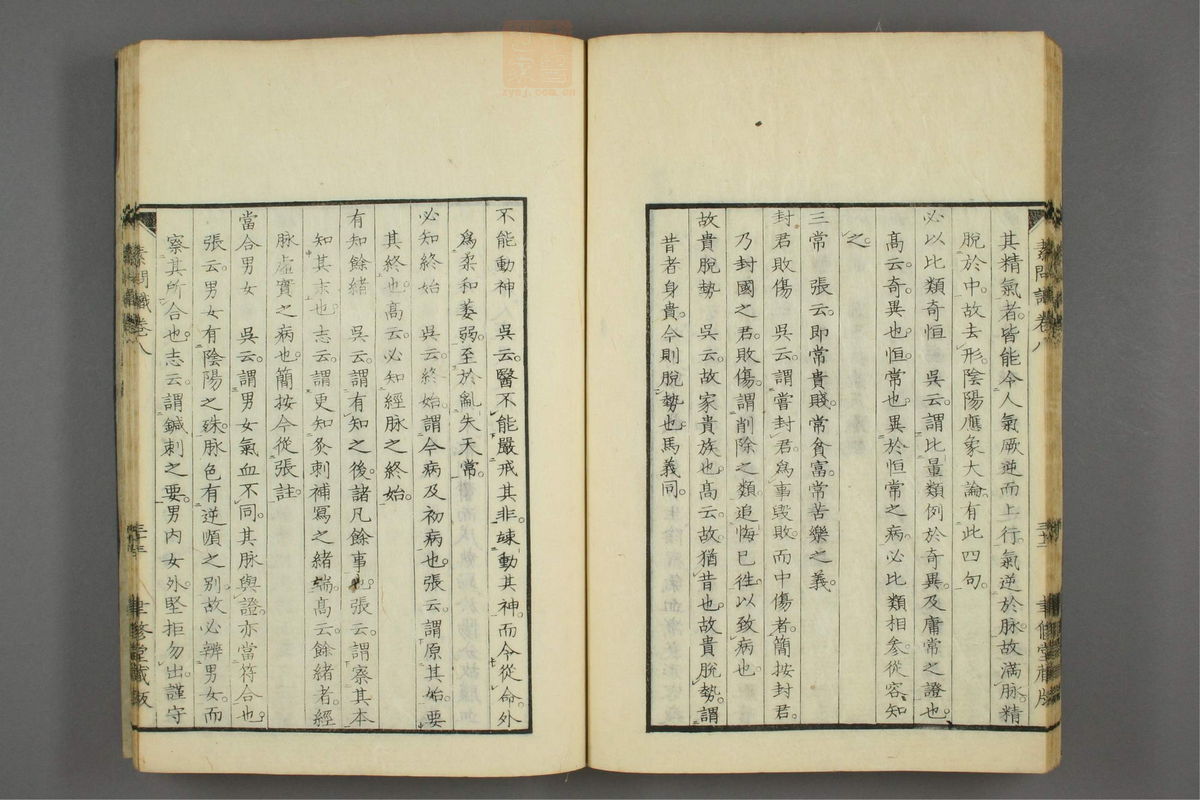 其精氣者。皆能令人氣厥逆而上行。氣逆於脉。故滿脉。精
脫於中。故去形。陰陽應象大論。有此四句。
必以比類奇恒 吳云。謂比量類例於奇異。及庸常之證也。
高云。奇異也。恒常也。異於恒常之病。必比類相參。從容知
之。
三常 張云。即常貴賤。常貧富。常苦樂之義。
封君敗傷 吳云。謂嘗封君。爲事毀敗。而中傷者。簡按封君。
乃封國之君。敗傷。謂削除之類。追悔已徃。以致病也。
故貴脫勢 吳云。故家貴族也。高云。故。猶昔也。故貴脫勢。謂
昔者身貴。今則脫勢也。馬義同。
素問識卷八
聿修堂藏版
不能動神 吳云。醫不能嚴戒其非。竦動其神。而令從命。外
爲柔和萎弱。至於亂失天常。
必知終始 吳云。終始。謂今病及初病也。張云。謂原其始。要
其終也。高云。必知經脉之終始。
有知餘緒 吳云。謂有知之後。諸凡餘事也。張云。謂察其本
知其末也。志云。謂更知灸刺補寫之緒端。高云。餘緒者。經
脉虛實之病也。簡按今從張註。
當合男女 吳云。謂男女氣血不同。其脉與證。亦當符合也。
張云。男女有陰陽之殊。脉色有逆順之別。故必辨男女。而
察其所合也。志云。謂鍼刺之要。男內女外。堅拒勿出。謹守
素問識卷八
三十三
聿修堂藏版